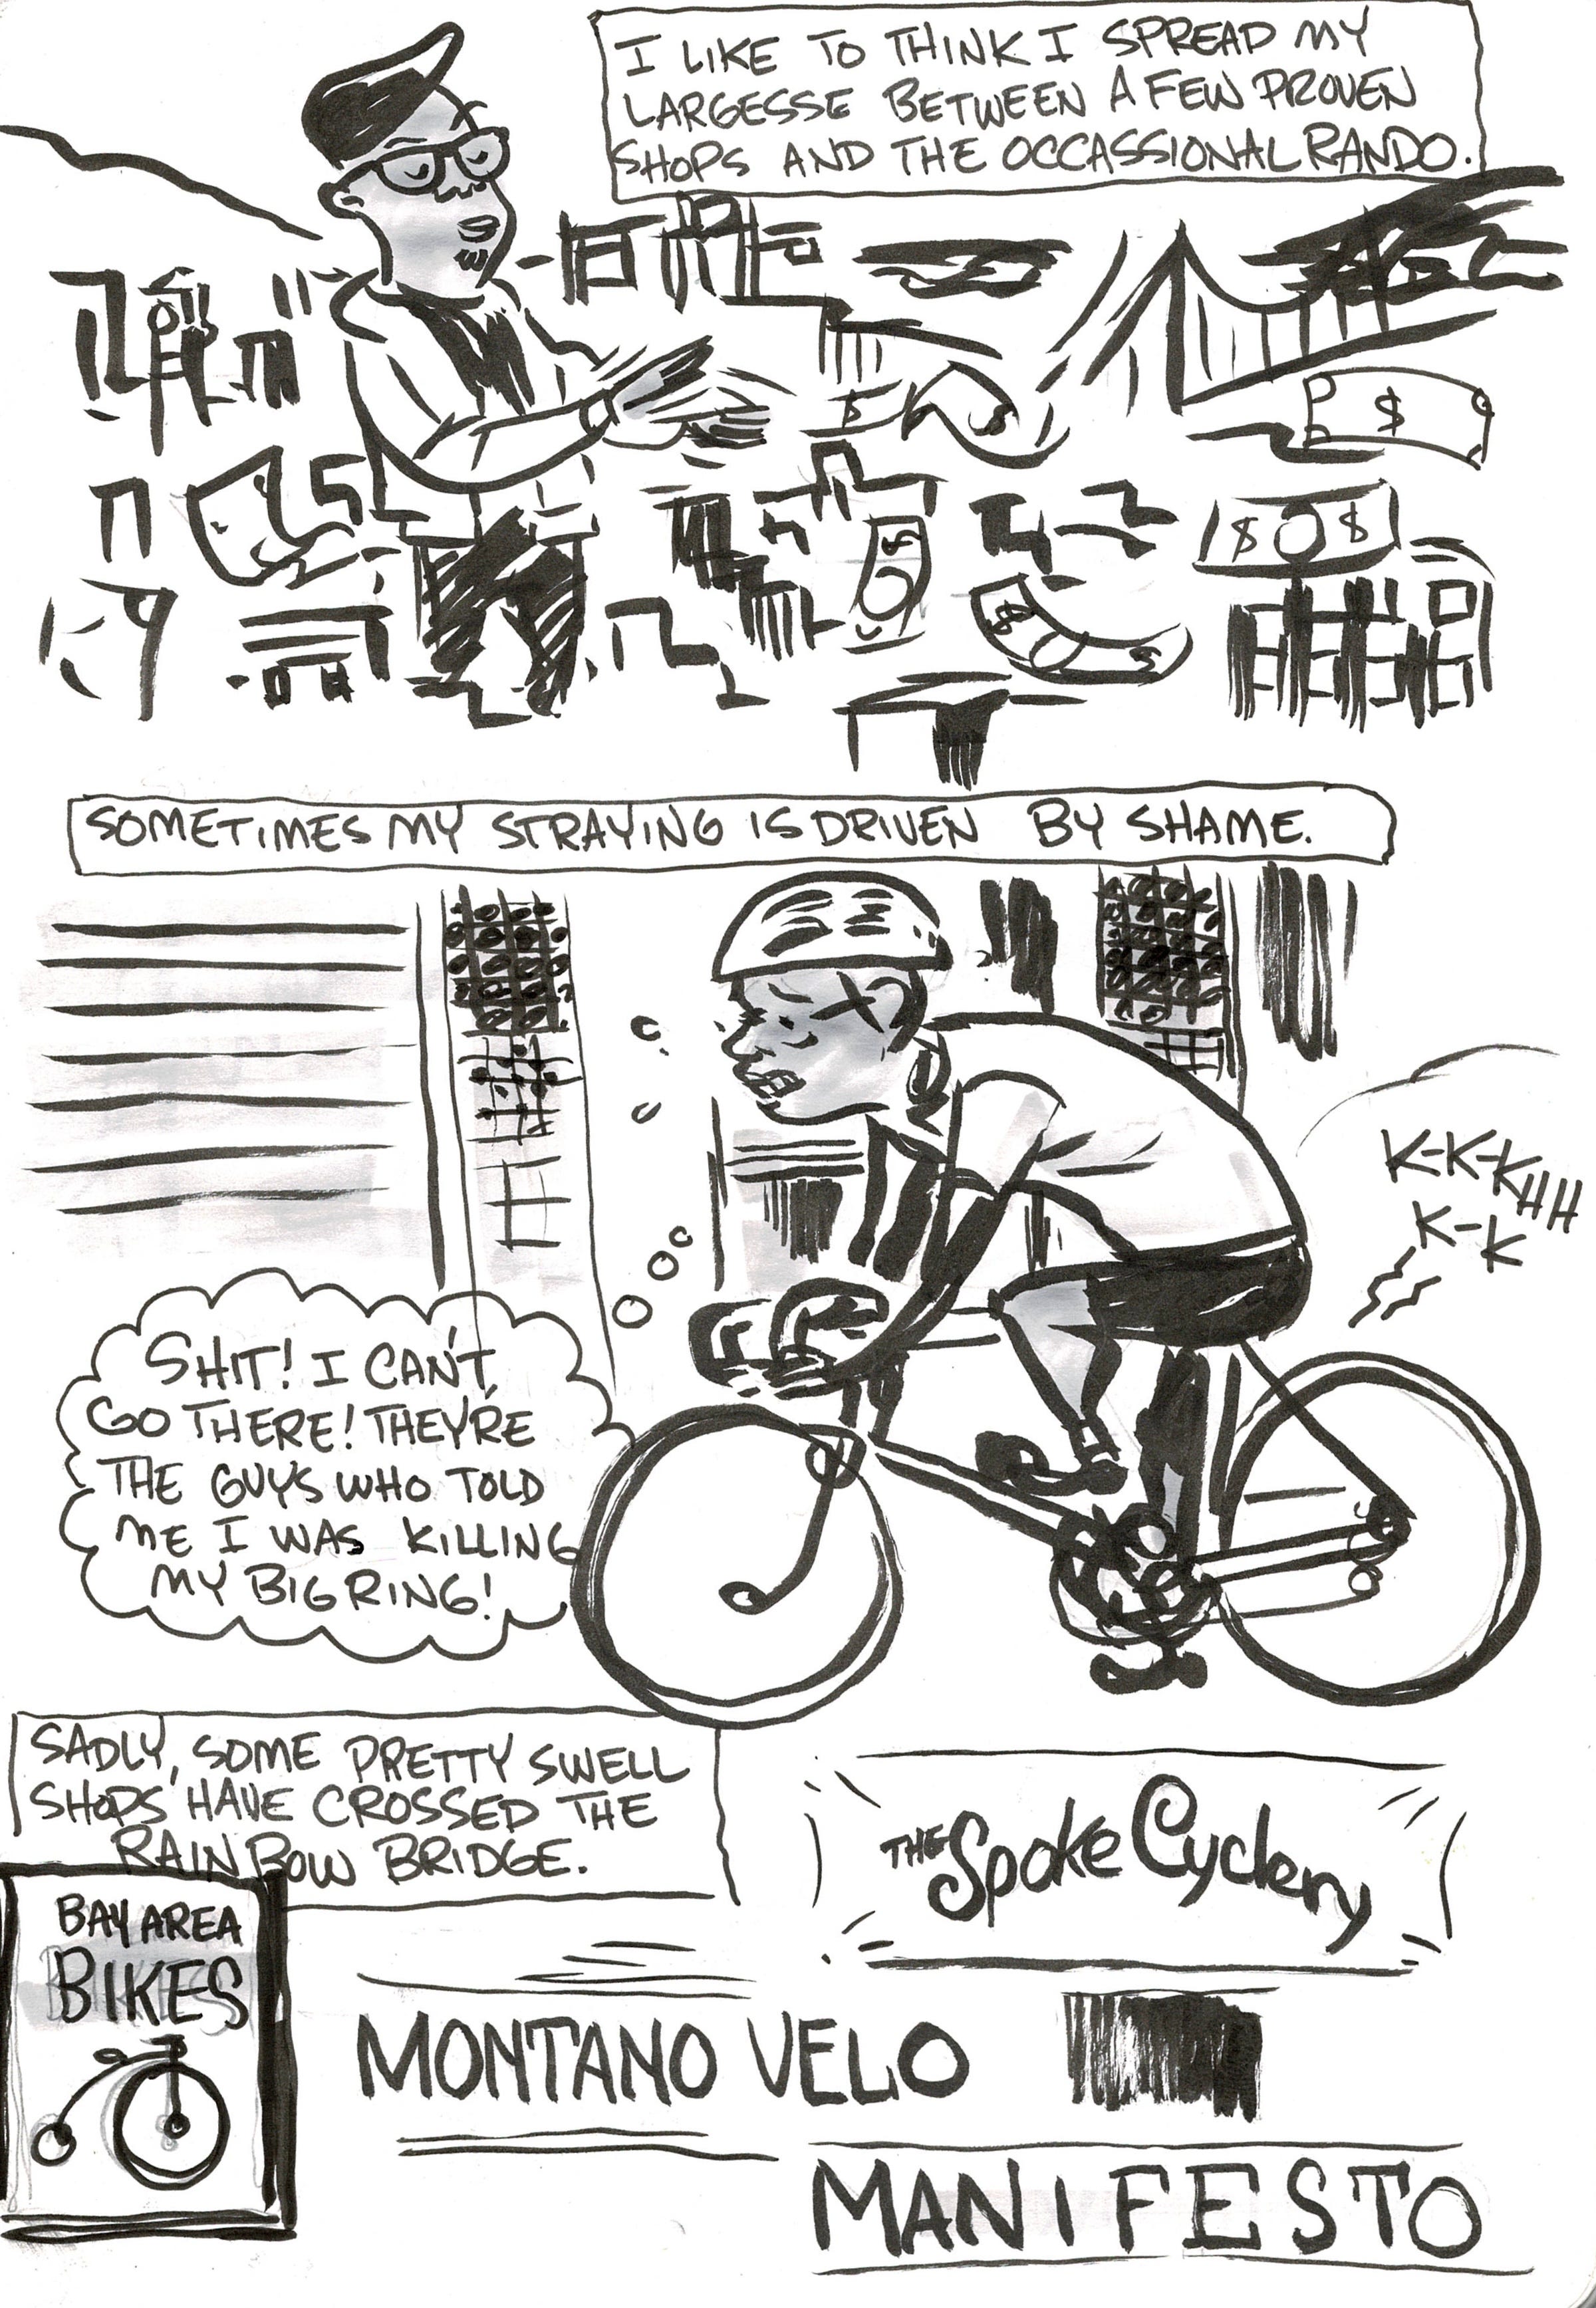 I LIKE TO THINK I SPREAD MY
LARGESSE BETWEEN A FEW PROVEN
SHOPS AND THE OCCASSIONAL RANDO.
$
$
$ $
$
$ $
SOMETIMES MY STRAYING IS DRIVEN BY SHAME.
K-K-KHH
K-K
SHIT! I CAN'T
GO THERE! THEY'RE
THE GUYS WHO TOLD
ME I WAS KILLING
MY BIG RING!
SADLY, SOME PRETTY SWELL
SHOPS HAVE CROSSED THE
RAINBOW BRIDGE.
THE Spoke Cyclery
BAY AREA
BIKES
MONTANO VELO
MANIFESTO